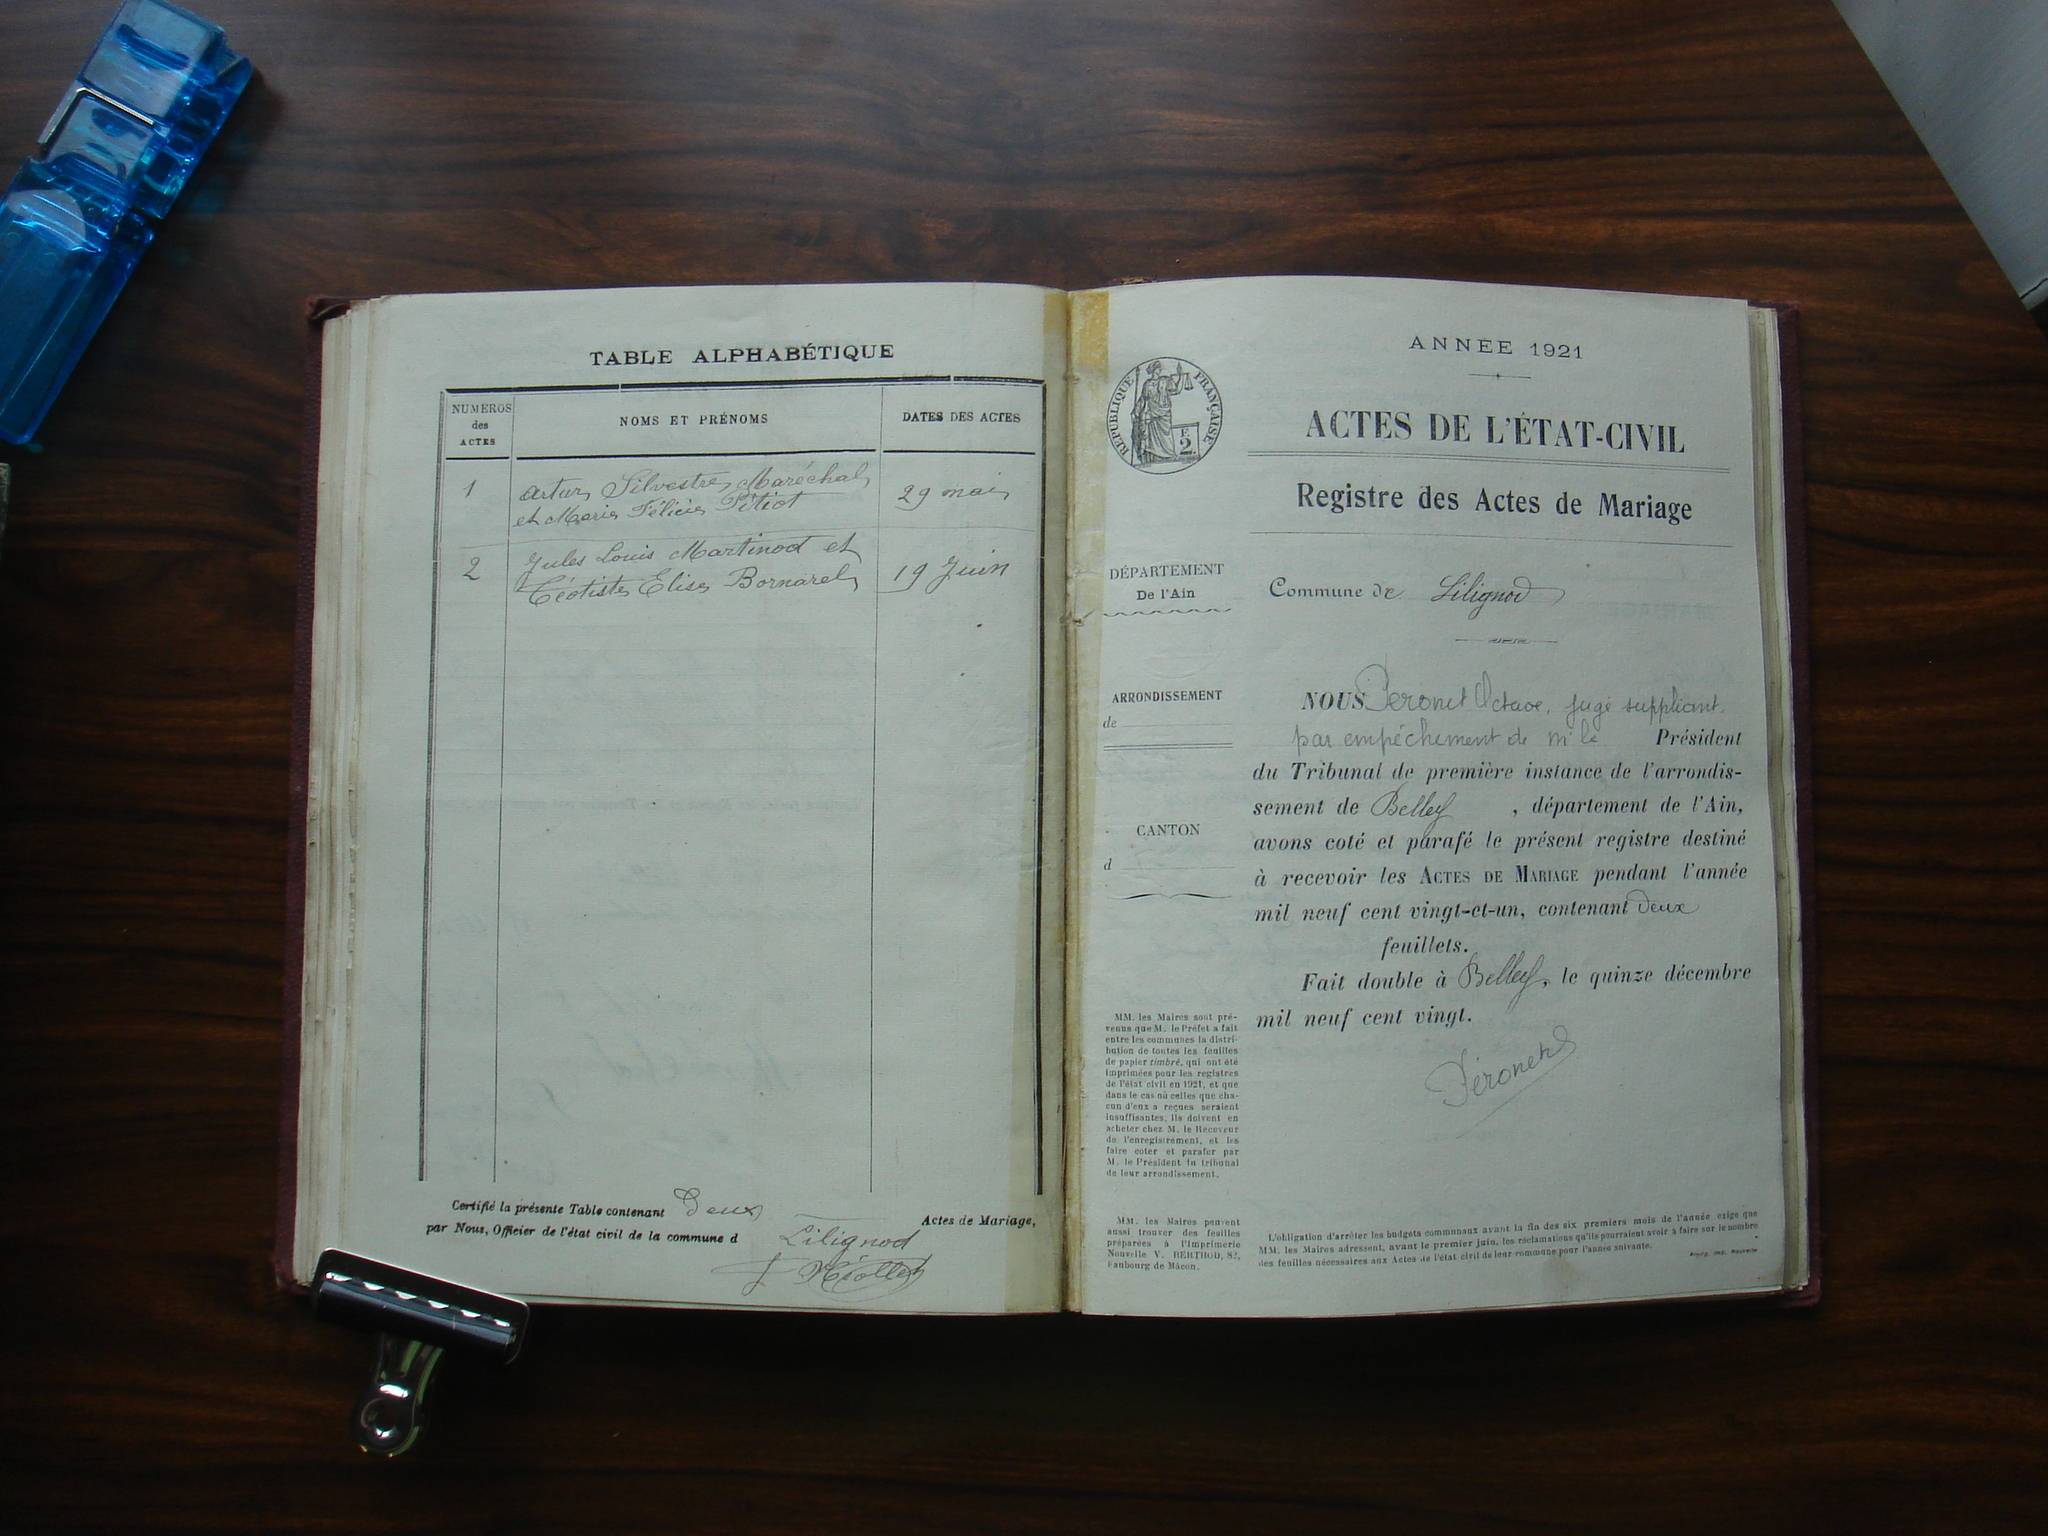 TABLE ALPHABÉTIQUE
NUMEROS
des
ACTES
NOMS ET PRÉNOMS
DATES DES ACTES
1
Artur Silvestre Maréchal
et Marie Félicie Pitiot
29 mai
2
Jules Louis Martinod et
Téotiste Elise Bornarel
19 Juin
Certifié la présente Table contenant Deux
Actes de Mariage,
par Nous, Officier de l'état civil de la commune d
Lilignod
ANNÉE 1921
RÉPUBLIQUE FRANÇAISE
F.
2.
ACTES DE L'ÉTAT-CIVIL
Registre des Actes de Mariage
DÉPARTEMENT
De l'Ain
Commune de Lilignod
ARRONDISSEMENT
de
CANTON
d
NOUS Péronet Octave, juge suppléant,
par empêchement de Mr le Président
du Tribunal de première instance de l'arrondis-
sement de Belley , département de l'Ain,
avons coté et parafé le présent registre destiné
à recevoir les ACTES DE MARIAGE pendant l'année
mil neuf cent vingt-et-un, contenant deux
feuillets.
Fait double à Belley, le quinze décembre
mil neuf cent vingt.
Péronet
MM. les Maires sont pré-
venus que M. le Préfet a fait
entre les communes la distri-
bution de toutes les feuilles
de papier timbré, qui ont été
imprimées pour les registres
de l'état civil en 1921, et que
dans le cas où celles que cha-
cun d'eux a reçues seraient
insuffisantes, ils doivent en
acheter chez M. le Receveur
de l'enregistrement, et les
faire coter et parafer par
M. le Président du tribunal
de leur arrondissement.
MM. les Maires peuvent
aussi trouver des feuilles
préparées à l'Imprimerie
Nouvelle V. BERTHOD, 82,
Faubourg de Mâcon.
L'obligation d'arrêter les budgets communaux avant la fin des six premiers mois de l'année exige que
MM. les Maires adressent, avant le premier juin, les réclamations qu'ils pourraient avoir à faire sur le nombre
des feuilles nécessaires aux Actes de l'état civil de leur commune pour l'année suivante.
Bourg, Imp. Nouvelle